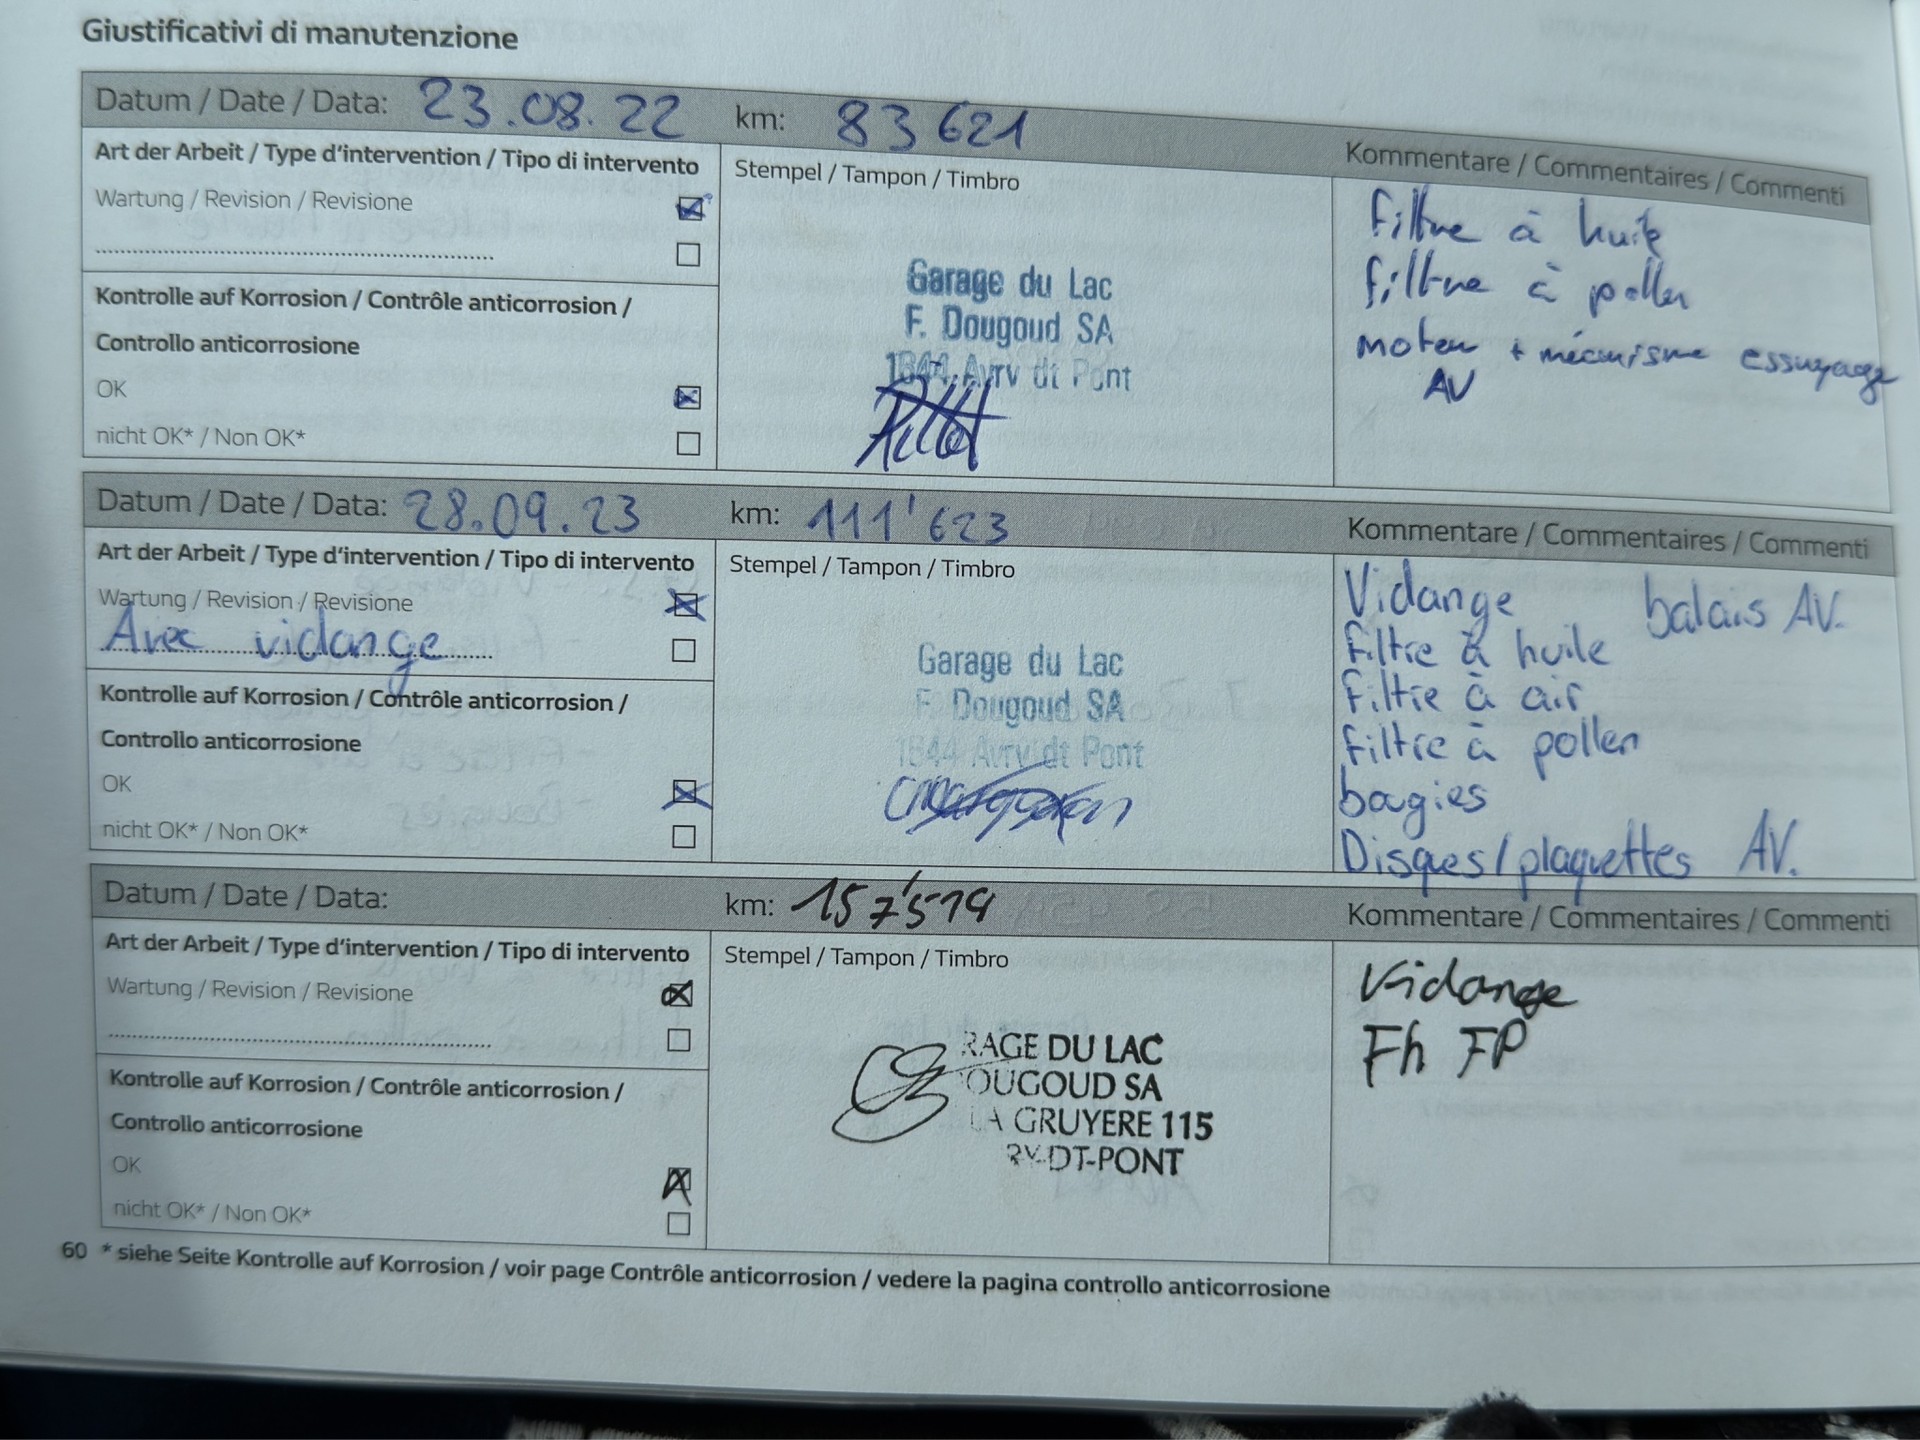 Giustificativi di manutenzione
Datum / Date / Data: 23.08.22 km: 83 621
Kommentare / Commentaires / Commenti
Art der Arbeit / Type d'intervention / Tipo di intervento
Wartung / Revision / Revisione
Kontrolle auf Korrosion / Contrôle anticorrosion /
Controllo anticorrosione
OK
nicht OK* / Non OK*
Stempel / Tampon / Timbro
Garage du Lac
F. Dougoud SA
1644 Avry dt Pont
Filtre à huile
filtre à pollen
moteur + mécanisme essuyage
AV
Datum / Date / Data: 28.09.23 km: 111'623
Kommentare / Commentaires / Commenti
Art der Arbeit / Type d'intervention / Tipo di intervento
Wartung / Revision / Revisione
Avec vidange
Kontrolle auf Korrosion / Contrôle anticorrosion /
Controllo anticorrosione
OK
nicht OK* / Non OK*
Stempel / Tampon / Timbro
Garage du Lac
F. Dougoud SA
1644 Avry dt Pont
Vidange balais AV.
Filtre à huile
Filtre à air
Filtre à pollen
bougies
Disques/plaquettes AV.
Datum / Date / Data: km: 157'519
Kommentare / Commentaires / Commenti
Art der Arbeit / Type d'intervention / Tipo di intervento
Wartung / Revision / Revisione
Kontrolle auf Korrosion / Contrôle anticorrosion /
Controllo anticorrosione
OK
nicht OK* / Non OK*
Stempel / Tampon / Timbro
RAGE DU LAC
OUGOUD SA
LA GRUYERE 115
RY-DT-PONT
Vidange
Fh FP
60 * siehe Seite Kontrolle auf Korrosion / voir page Contrôle anticorrosion / vedere la pagina controllo anticorrosione